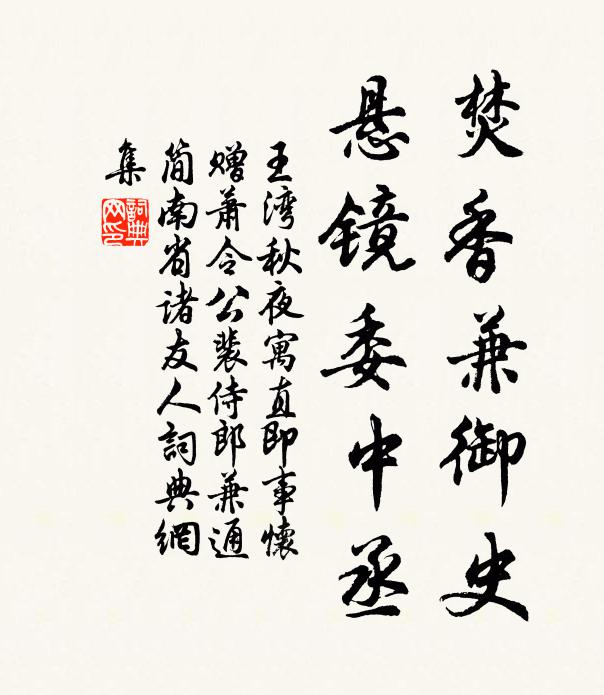 焚香兼御史
悬镜委中丞
王湾秋夜寓直即事怀
赠萧令公裴侍郎兼通
简南省诸友人詞典網
集
詞典
网印